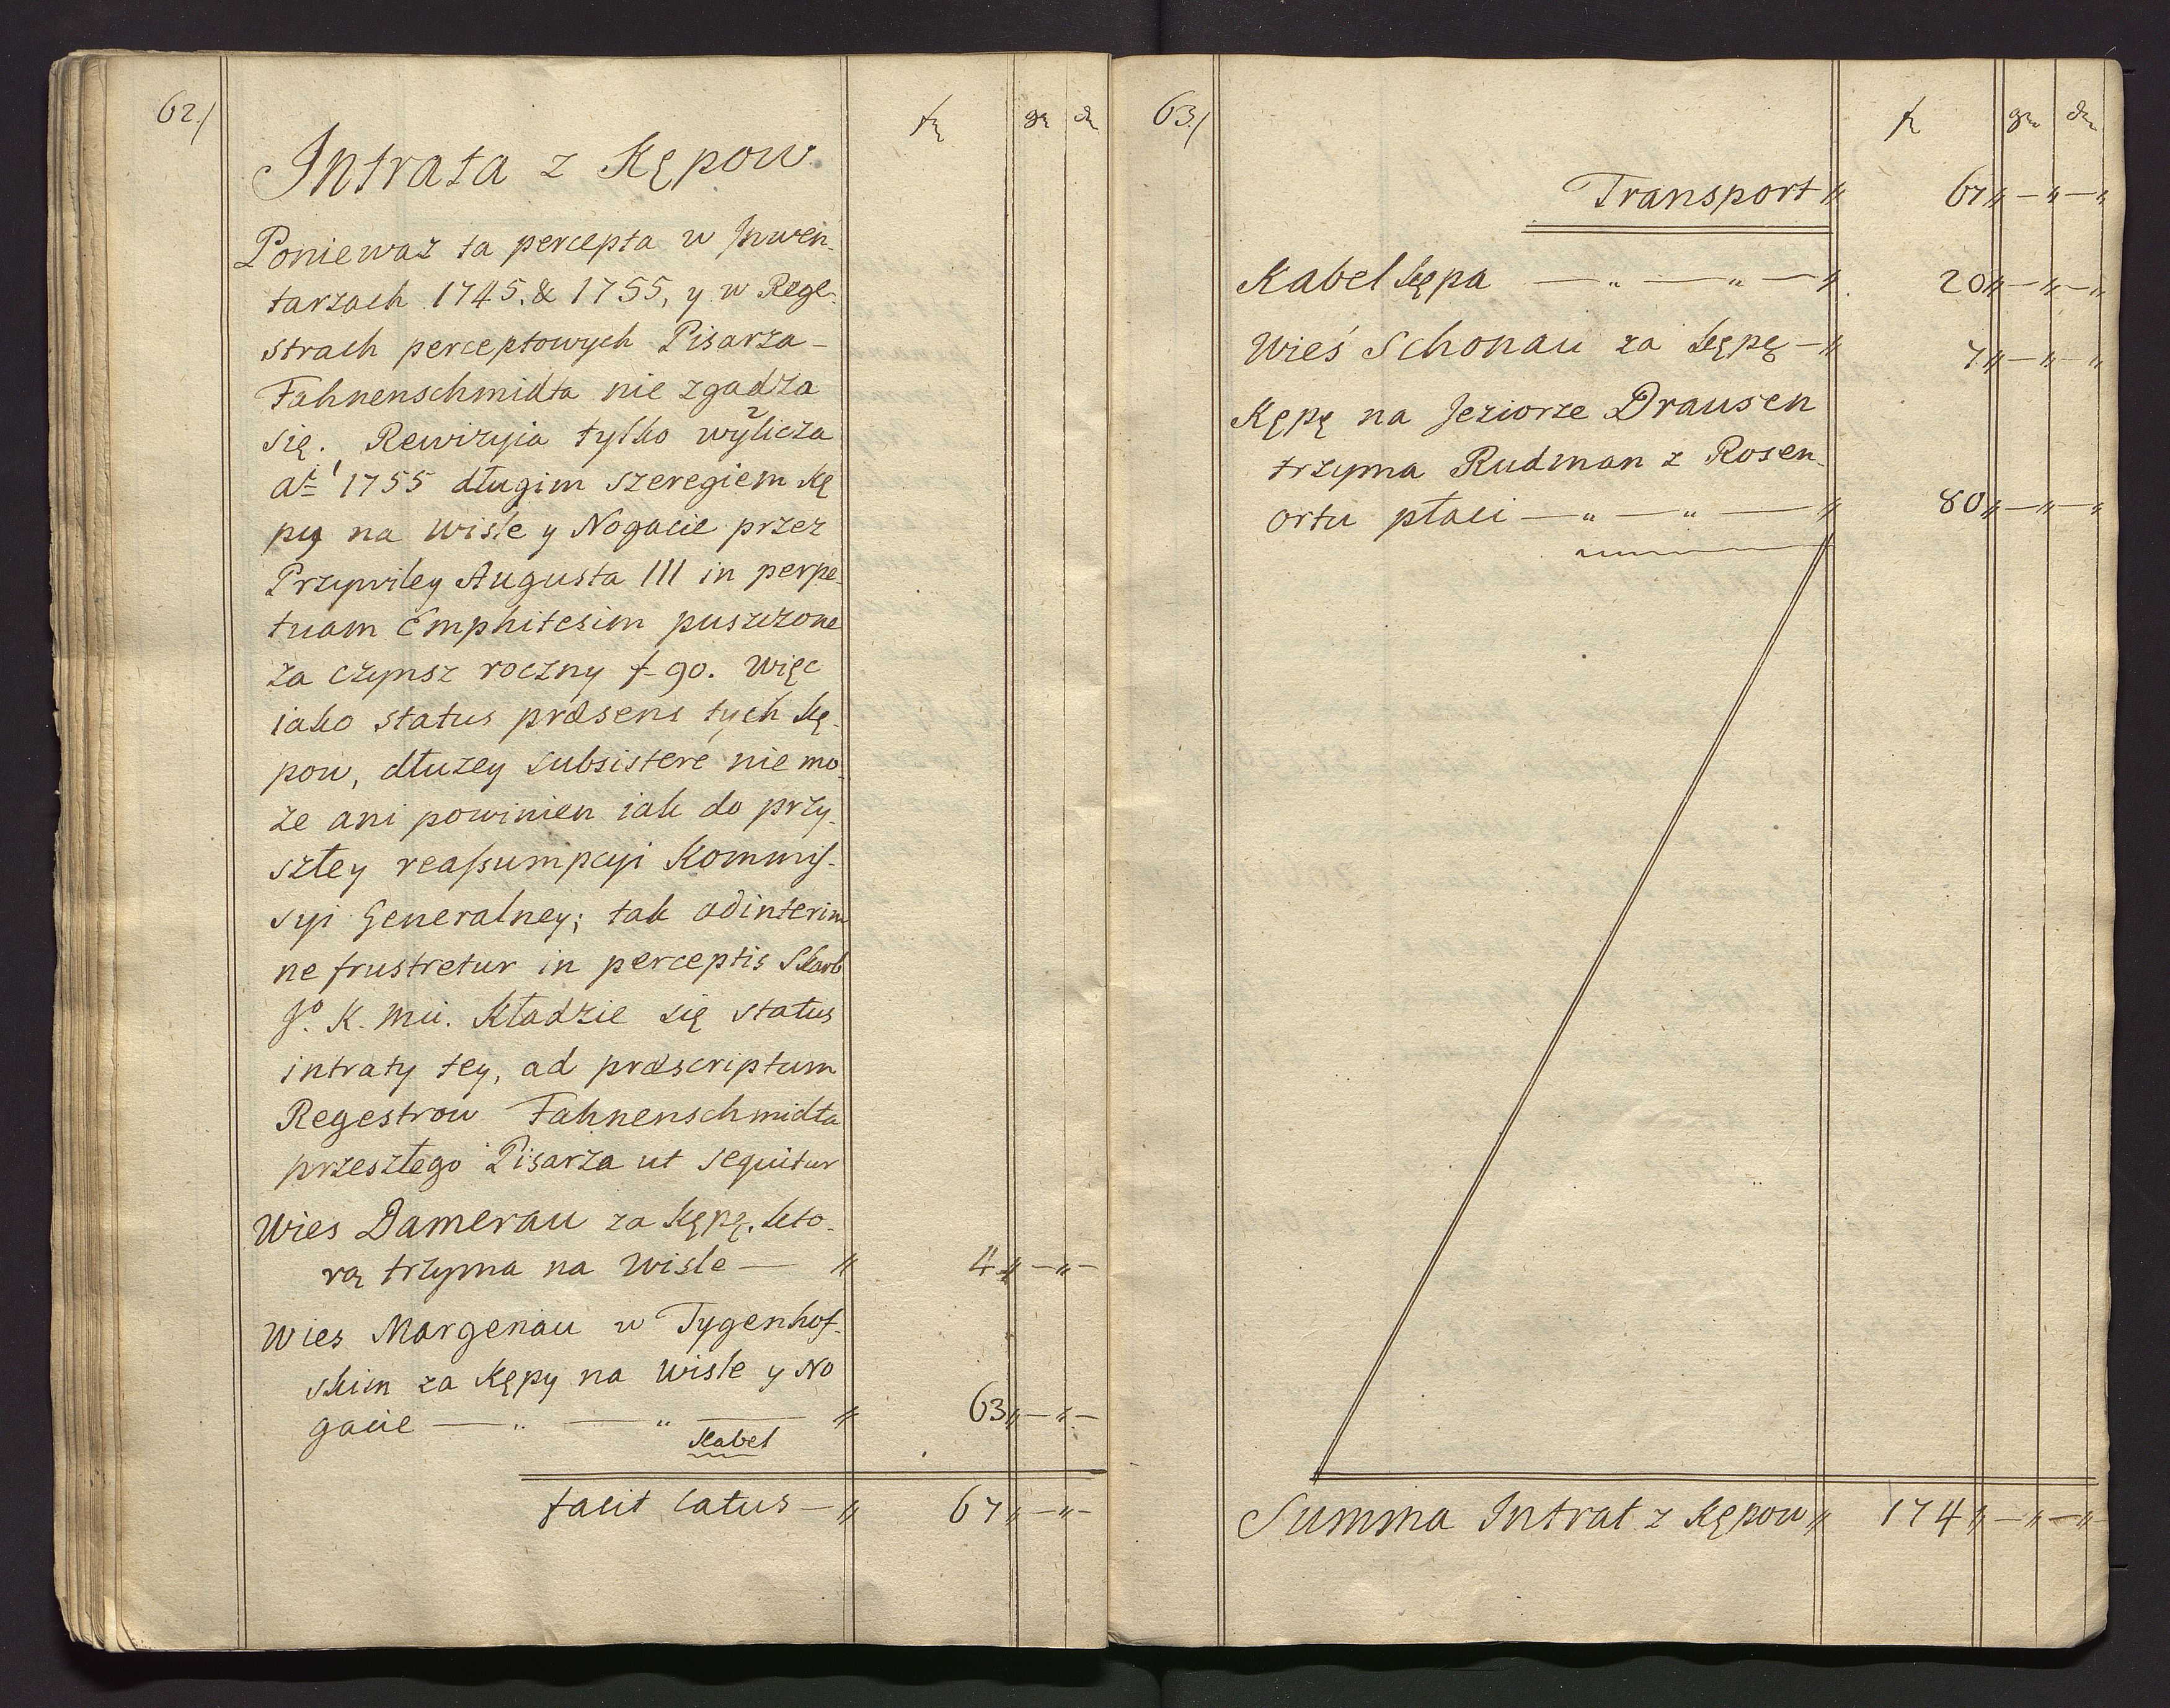 62./
f gr dn
Intrata z Kępow
Poniewaz ta percepta w Inwen-
tarzach 1745. & 1755, y w Rege-
strach perceptowych Pisarza-
Fahnenschmidta nie zgadza
się. Rewizyia tylko wylicza
1755 długim szeregiem Kę
py na Wisle y Nogacie przez
Przywiley Augusta III in perpe-
tuam Emphitesim puszczone
za czynsz roczny f 90. Więc
iako status præsens tych Kę-
pow, dłuzey subsistere nie mo-
ze ani powinien iak do przy-
szłey reassumpcyi Kommis-
syi Generalney; tak adinterim
ne frustretur in perceptis Skarb
Jo. K. Mci. Kładzie się status
intraty tey, ad præscriptum
Regestrow Fahnenschmidta
przeszłego Pisarza ut sequitur
Wies Damerau za Kępę, kto-
rą trzyma na Wisle — " 4 " — " —
Wies Margenau w Tygenhof-
skim za Kępy na Wisle y No
gacie — " — " — " 63 " — " —
Kabel
facit latus — " 67 " — " —
63./
f gr dn
Transport " 67 " — " — "
Kabel Kępa — " — " — " 20 " — " — "
Wieś Schonau za Kępę — " 7 " — " — "
Kępę na Jeziorze Drausen
trzyma Rudman z Rosen-
ortu płaci — " — " — " 80 " — " — "
Summa Intrat z Kępow " 174 " — " — "